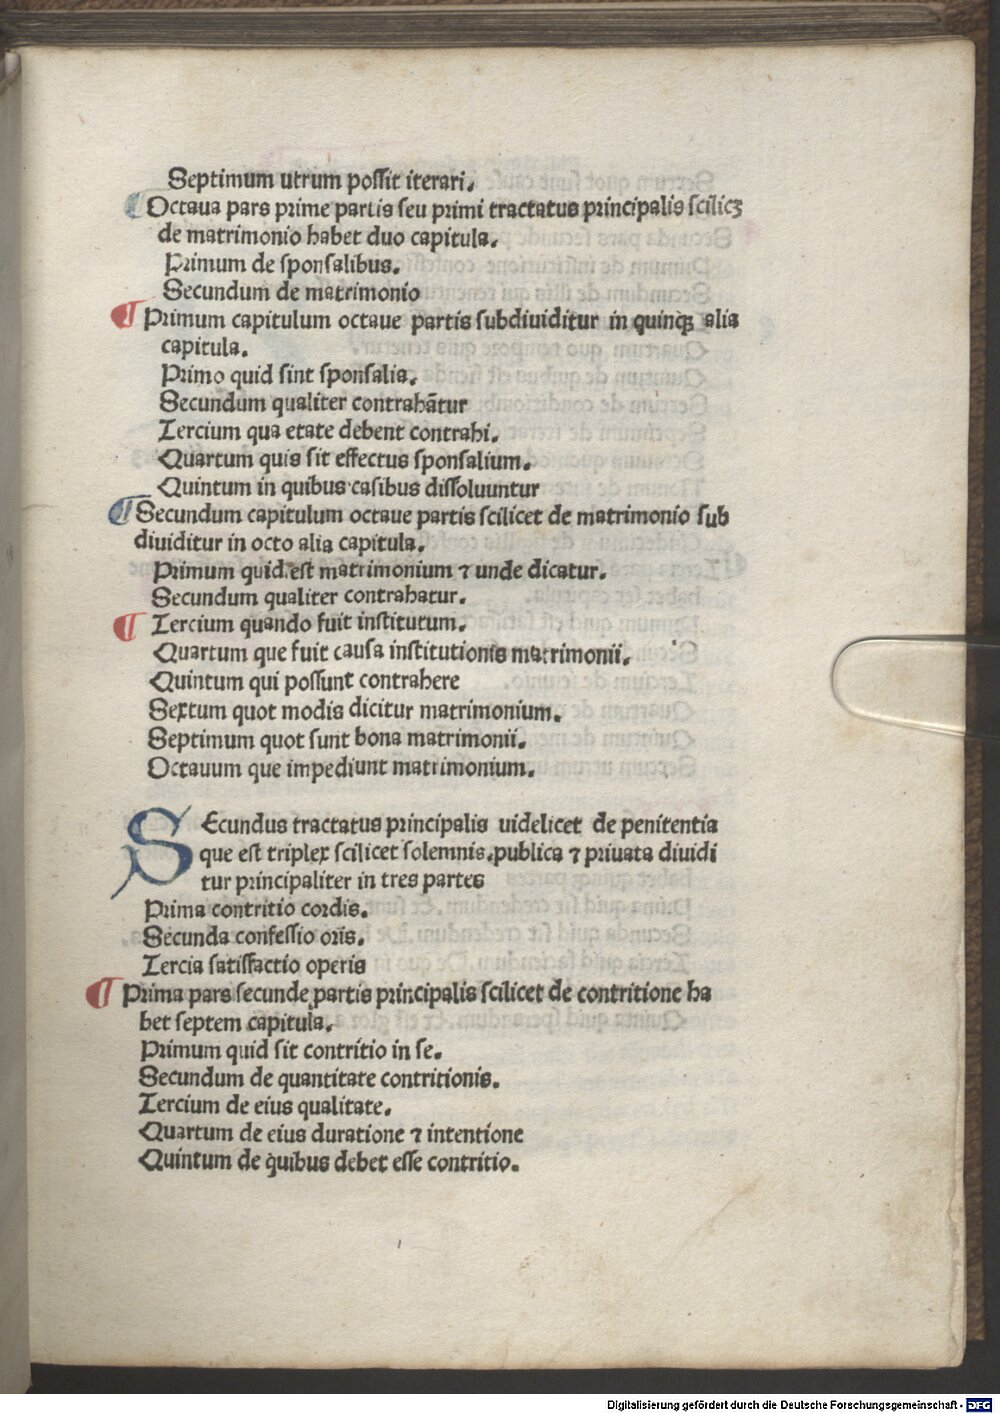 Septimum utrum possit iterari.
¶ Octaua pars prime partis seu primi tractatus principalis scilicꝫ
de matrimonio habet duo capitula.
Primum de sponsalibus.
Secundum de matrimonio
¶ Primum capitulum octaue partis subdiuiditur in quinqꝫ alia
capitula.
Primo quid sint sponsalia.
Secundum qualiter contrahãtur
Tercium qua etate debent contrahi.
Quartum quis sit effectus sponsalium.
Quintum in quibus casibus dissoluuntur
¶ Secundum capitulum octaue partis scilicet de matrimonio sub
diuiditur in octo alia capitula.
Primum quid est matrimonium ⁊ unde dicatur.
Secundum qualiter contrahatur.
¶ Tercium quando fuit institutum.
Quartum que fuit causa institutionis matrimonii.
Quintum qui possunt contrahere
Sextum quot modis dicitur matrimonium.
Septimum quot sunt bona matrimonii.
Octauum que impediunt matrimonium.
SEcundus tractatus principalis uidelicet de penitentia
que est triplex scilicet solemnis.publica ⁊ priuata diuidi
tur principaliter in tres partes
Prima contritio cordis.
Secunda confessio oris.
Tercia satisfactio operis
¶ Prima pars secunde partis principalis scilicet de contritione ha
bet septem capitula.
Primum quid sit contritio in se.
Secundum de quantitate contritionis.
Tercium de eius qualitate.
Quartum de eius duratione ⁊ intentione
Quintum de quibus debet esse contritio.
Digitalisierung gefördert durch die Deutsche Forschungsgemeinschaft - DFG